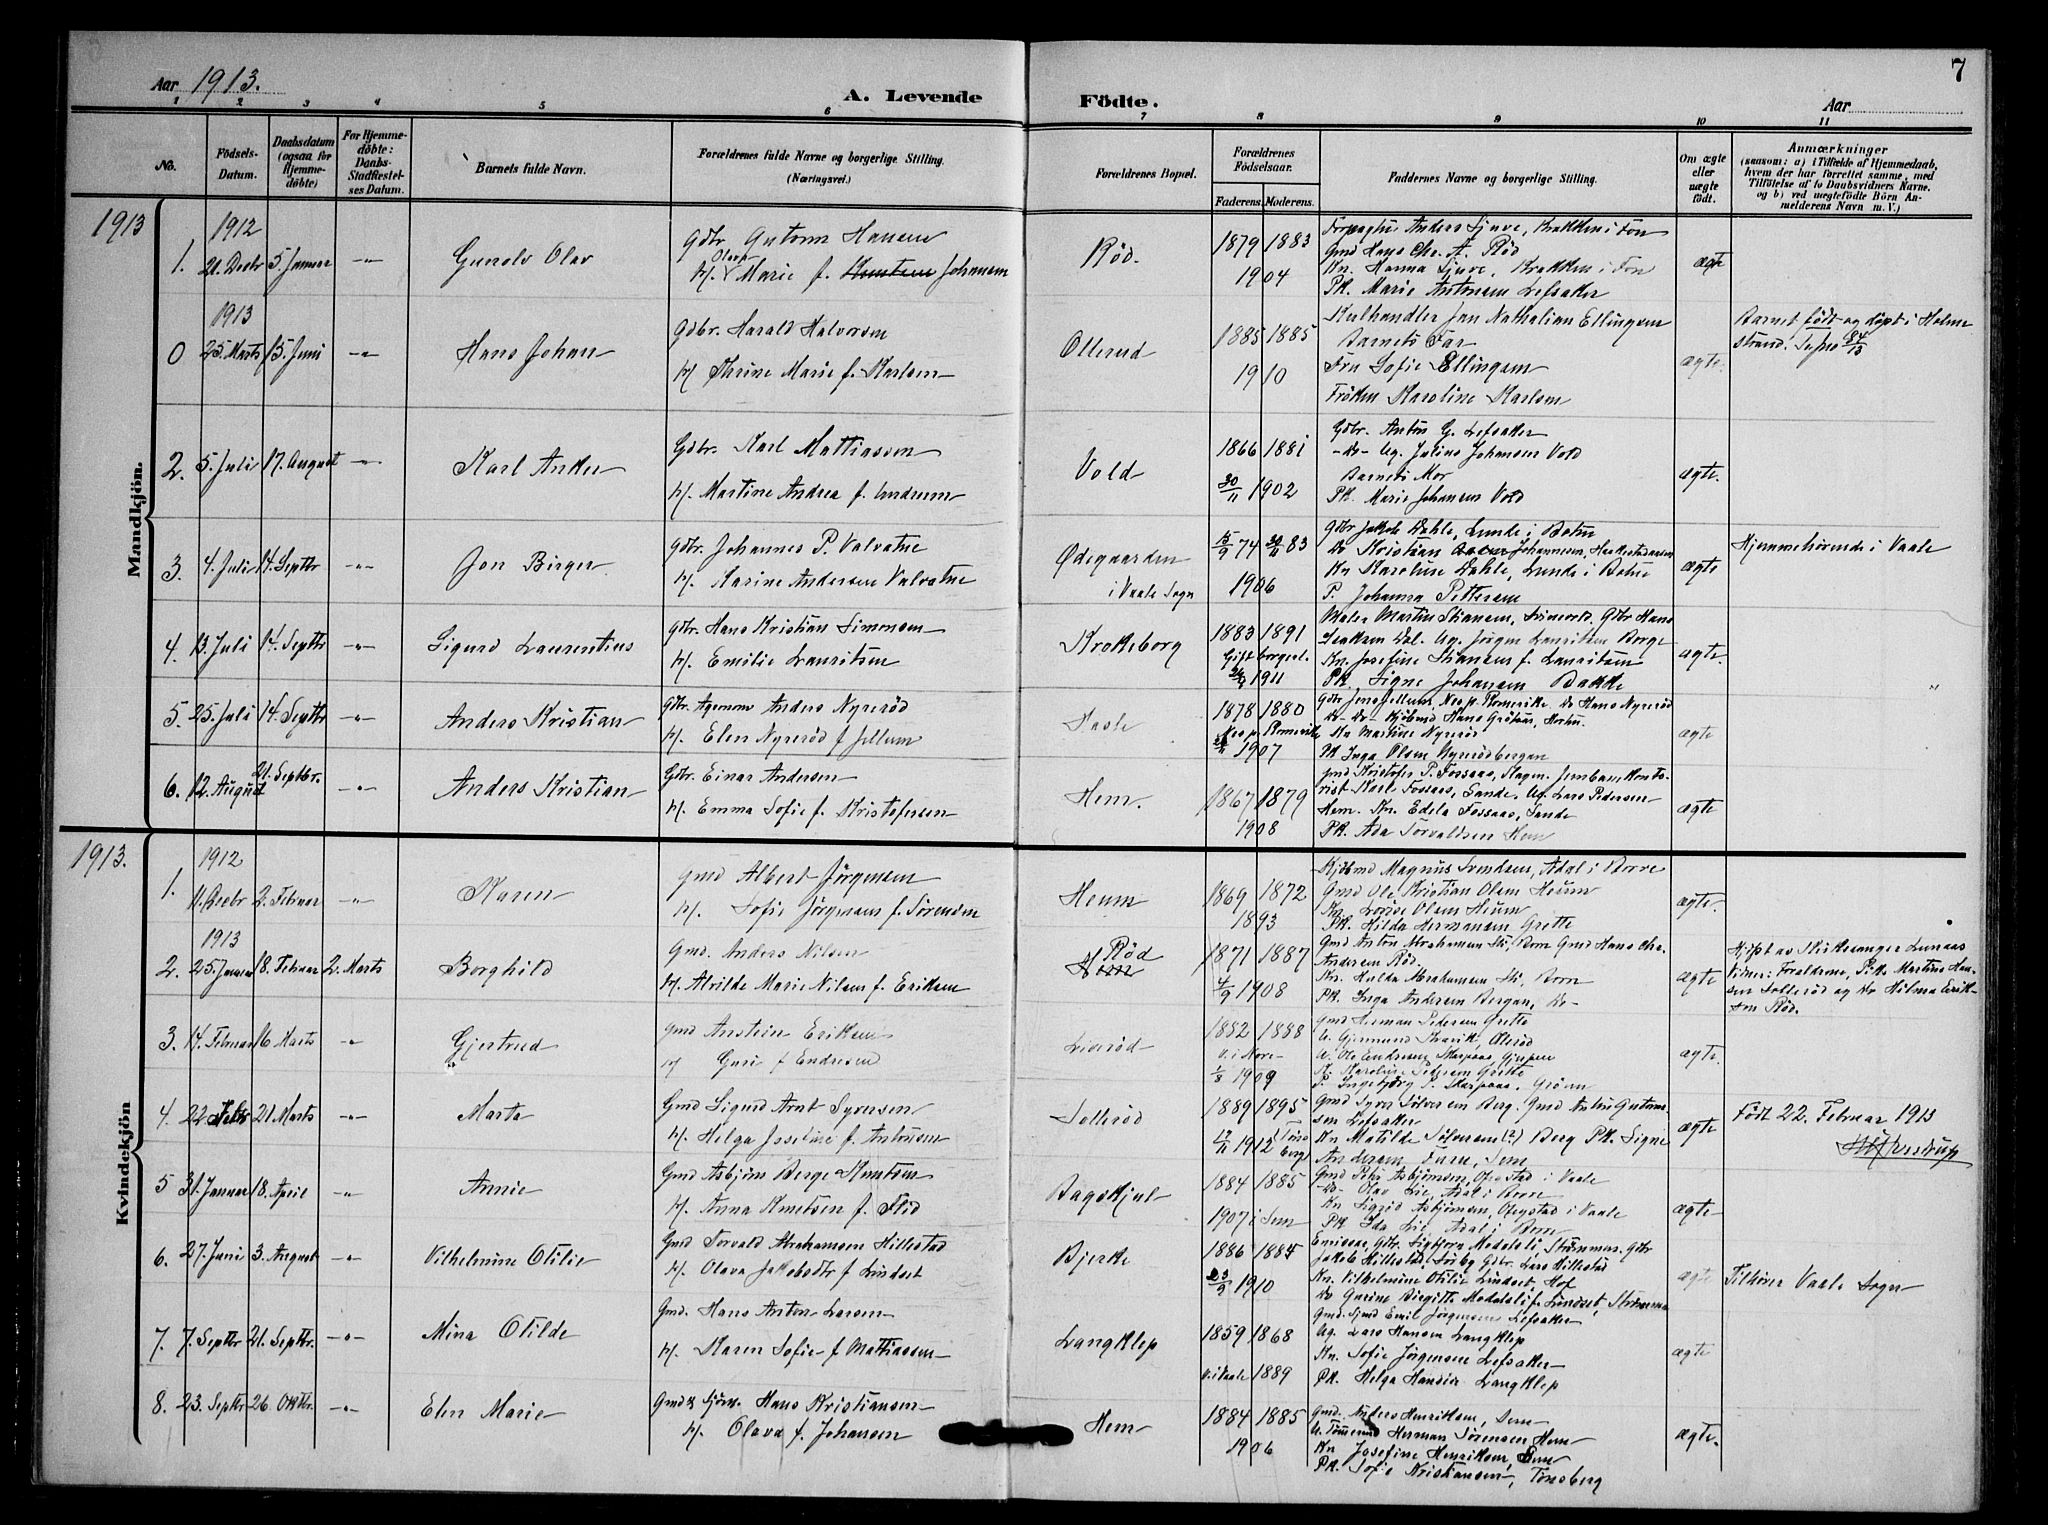 7
Aar 1913.
A. Levende Födte.
Aar
1 2 3 4 5 6 7 8 9 10 11
No.
Födsels-Datum.
Daabsdatum (ogsaa for Hjemme-döbte)
For Hjemme-döbte: Daabs-Stadfæstel-ses Datum.
Barnets fulde Navn.
Forældrenes fulde Navne og borgerlige Stilling.
(Næringsvei.)
Forældrenes Bopæl.
Forældrenes Födselsaar.
Faderens. Moderens.
Faddernes Navne og borgerlige Stilling.
Om ægte eller uægte født.
Anmærkninger
(saasom: a) i Tilfælde af Hjemmedaab,
hvem der har forrettet samme, med
Tilföielse af to Daabsvidners Navne.
og b) ved uægtefödte Börn An-
melderens Navn m. V.)
Mandkjön.
1913
1912
1. 21. Decbr 5. Januar -"- Gunolv Olav
Gdbr Antonn Hansen
H. Olava Marie f. Johansen
Röd.
1879 1883
1904
Anders Sjuve, Krakken i Fon
Gmd Hans Chr. A. Röd
Kn. Hanna Sjuve, Krakken i Fon
Pk. Marie Antonsen Lefsaker
ægte
1913
0 25. Marts 15. Juni -"- Hans Johan
Gdbr. Harald Halvorsen
H/ Thrine Marie f. Karlsen
Ollerud
1885 1885
1910
Kulhandler Jan Nathalian Ellingsen
Barnets Far
Fru Sofie Ellingsen
Fröken Karoline Karlsen
ægte.
Barnet födt og döpt i Holme
strand.
2. 5. Juli 17. August -"- Karl Anker
Gdbr. Karl Mattiassen
H/. Martine Andrea f. Andersen
Vold
1866 1881
30/11 1902
Gdbr. Anton G. Lefsaker
-do- Ug. Julius Johansen Vold
Barnets Mor
Pk. Marie Johansen Vold
ægte.
3. 4. Juli 14. Septbr -"- Jon Birger
Gdbr. Johannes P. Valvatne
H/. Karine Andersen Valvatne
Ødegaarden
i Vaale Sogn
15/9 74 30/11 83
1906
Gdbr Jakob Dahle, Lunde i Botne
Do Kristian Johannesen, Haakestadaasen
Kn Karoline Dahle, Lunde i Botne
P. Johanna Pettersen
ægte
Hjemmehörende i Vaale
4. 13. Juli 14. Septbr -"- Sigurd Laurentius
Gdbr. Hans Kristian Simonsen
H/. Emilie Lauritsen
Krokeborg
1883 1891
Gift borgerl.
1911
Maler Martin Stiansen, Svinevold. Gdbr Hans
Isaksen Dal. Ug. Jörgen Lauritsen Borge
Kn. Josefine Stiansen f. Lauritsen
Pk. Signe Johansen Bakke
ægte.
5. 25. Juli 14. Septbr -"- Anders Kristian
Gdbr. Agronom Anders Nyreröd
H/. Elen Nyreröd f Jellum
Hasle
1878 1880
Nes p. Romerike
1907
Gdbr Jens Jellum, Nes p. Romerike Do Hans Nyreröd
Do- Do- Kjöbmd Hans Gröfsas, Horten.
Kn Martine Nyreröd
Pk Inga Olsen Nyrerödbergan
ægte
6. 12. August 21. Septbr. -"- Anders Kristian
Gdbr. Einar Andersen
H/. Emma Sofie f. Kristofersen
Hem.
1867 1879
1908
Gmd Kristofer P. Fossaas, Slagen. Jernbanekonto-
rist Karl Fossaas, Sande. Ug. Lars Pedersen
Hem. Kn. Edela Fossaas, Sande
Pk. Ada Torvaldsen Hem
ægte
Kvindekjön
1913.
1912
1. 11. Decbr 2. Februar -"- Karen
Gmd Albert Jörgensen
H/. Sofie Jörgensen f. Sörensen
Heum
1869 1872
1893
Kjöbmd Magnus Svendsen, Adal i Borre
Gmd Ole Kristian Olsen Heum
Kn Lovise Olsen Heum
Pk. Hilda Hermansen Grette
ægte.
1913
2. 25. Januar 18. Februar 2. Marts Borghild
Gmd. Anders Nilsen
H/. Alvilde Marie Nilsen f. Eriksen
Röd
1871 1887
4/9 1908
Gmd Anton Abrahamsen Ski, Borre Gmd Hans Chr.
Andersen Röd.
Kn. Hulda Abrahamsen Ski, Borre
Pk. Inga Andersen Bergan, Do-
ægte
Hjdpt av Kirkesanger Lunaas
Vidner: Foraldrene, Pik. Martine Han-
sen Solleröd og do Hilma Erik-
sen Röd.
3. 14. Februar 16. Marts -"- Gjertrud
Gmd Anstein Eriksen
H/ Guri f Endresen
Liveröd
1882 1888
v. i Nore-
1/3 1909
Gmd Herman Pedersen Grette
P. Ingebjörg P. Skarpaas. Gröien
ægte.
4. 22 Febr 21. Marts -"- Marta
Gmd Sigurd Arnt Syversen
H/. Helga Josefine f. Antonsen
Solleröd
1889 1895
1912 Töns berg
Gmd Syver Sölversen Berg. Gmd Anton Guttorm-
sen Lefsaker
Kn Matilde Sölversen (?) Berg Pk. Signe
Andersen Farre, Sem
ægte
Födt 22. Februar 1913
5 31. Januar 18. April -"- Annie
Gmd Asbjörn Berge Knutsen
H/. Anna Knutsen f. Flid
Bagskjul
1884 1885
1907 i Sem
Gmd Peter Asbjörnsen, Opstad i Vaale
-do- Olav Lie, Adal i Borre
Kn Sigrid Asbjörnsen, Opstad i Vaale
Pk Ida Lie Adal i Borre
ægte-
6. 27. Juni 3. August -"- Vilhelmine Otilie
Gmd Torvald Abrahamsen Hillestad
H/. Olava Jakobsdtr f Lindset
Bjerke
1886 1884
23/9 1910
Jakob Hillestad, Gdbr. Lars Hillestad
Kn. Vilhelmine Otilie Lindset, Hof
Do Gurine Birgitte Medalsli f. Lindset, Strömmen
ægte
Tilhörer Vaale Sogn
7. 7. Septbr 21. Septbr. -"- Mina Otilde
Gmd. Hans Anton Larsen
H/. Karen Sofie f Mattiassen
Langklep
1859 1868
v. i Vaale 1889
Gmd. Sjmd Emil Jörgensen Lefsaker
Ug. Lars Hansen Langklep
Kn. Sofie Jörgensen Lefsaker
Pk. Helga Hansen Langklep
ægte
8. 23. Septbr 26. Oktbr. -"- Elen Marie
Gmd & Sjöm. Hans Kristiansen
H/. Olava f. Johansen
Hem
1884 1885
1906
Gmd. Anders Henriksen, Sem
U. Tömmermd Herman Sörensen Hem
Kn Josefine Henriksen, Sem
Pk. Sofie Kristiansen, Tönsberg
ægte.